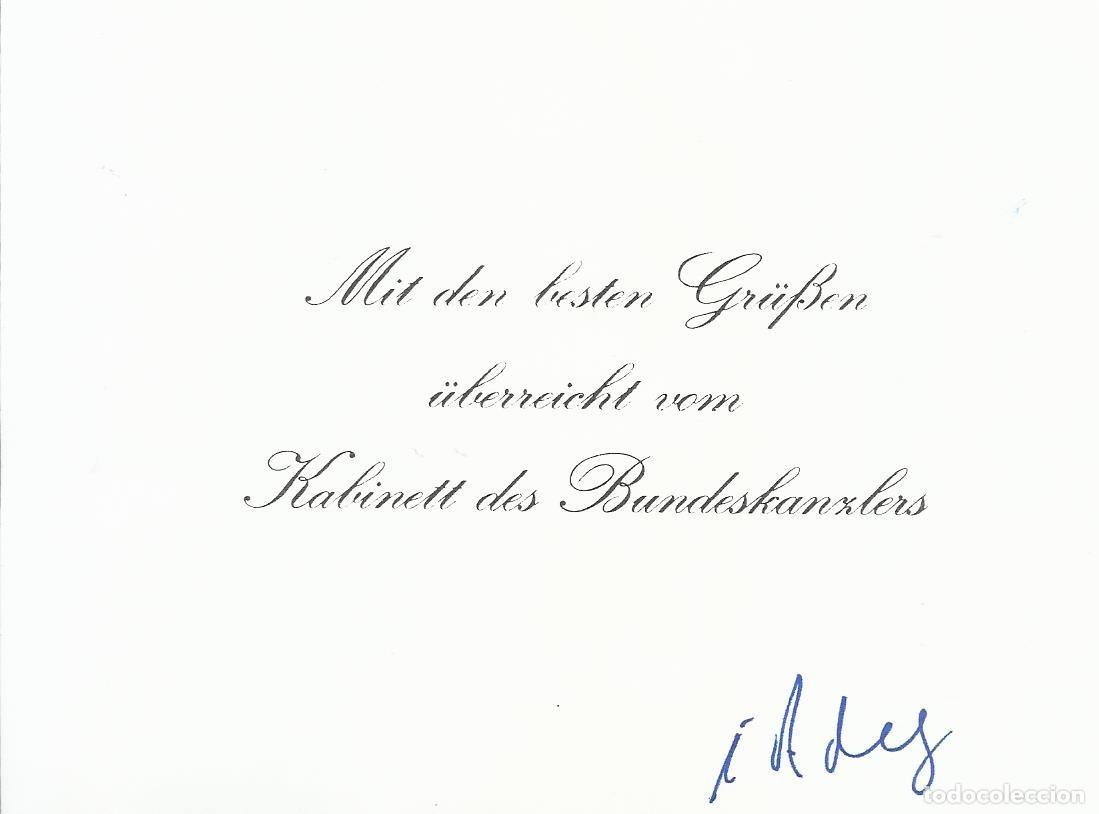 Mit den besten Grüßen
überreicht vom
Kabinett des Bundeskanzlers
todocoleccion